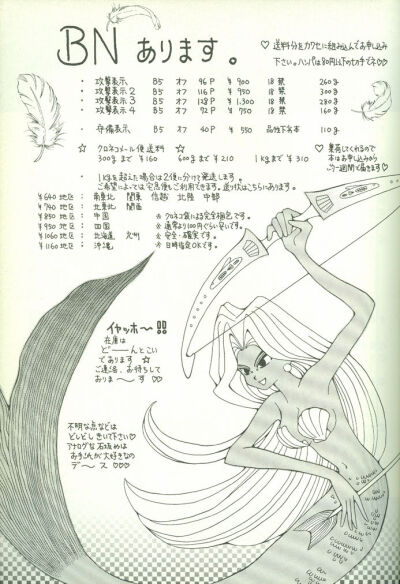 BN あります。
♡ 送料分をカワセに組み込んでお申し込み
下さい。ハンパは80円以下の切手でネ♡
・ 攻撃表示 B5 オフ 96P ¥900 18禁 260g
・ 攻撃表示2 B5 オフ 116P ¥950 18禁 300g
・ 攻撃表示3 B5 オフ 128P ¥1.300 18禁 280g
・ 攻撃表示4 B5 オフ 92P ¥750 18禁 160g
・ 守備表示 B5 オフ 40P ¥550 品性下劣本 110g
☆ クロネコメール便送料 ☆
300gまで ¥160 600gまで ¥210 1kgまで ¥310
♡ 集荷してくれるので
本はお申し込みから
1〜2週間で届きます♡
1kgを超えた場合は2便に分けて発送します。
ご希望によっては宅急便もご利用できます。送り状はこちらにあります。
¥640地区 : 南東北 関東 信越 北陸 中部
¥740地区 : 北東北 関西
¥850地区 : 中国 ※クロネコ箱による完全梱包です。
¥950地区 : 四国 ※通常より100円ぐらい安いです。
¥1060地区 : 北海道 九州 ※安全・確実です。
¥1160地区 : 沖縄 ※日時指定OKです。
イヤッホ〜!!
在庫は
どーーんとこい
であります ☆
ご連絡、お待ちして
おりま〜す ♡♡
不明な点などは
どしどし きいて下さい♡
アナログな
おてがみが大好きなの
デ〜ス ♡♡♡